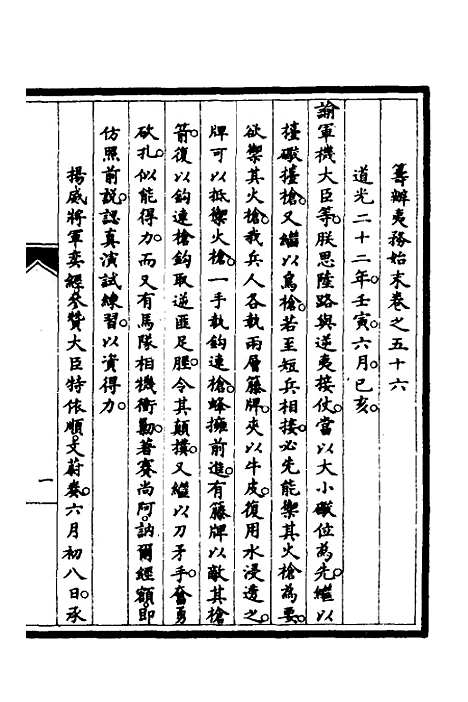 籌辦夷務始末卷之五十六
道光二十二年壬寅六月己亥
諭軍機大臣等朕思陸路與逆夷接仗當以大小礮位為先繼以
擡礮擡槍又繼以鳥槍若至短兵相接必先能禦其火槍為要
欲禦其火槍我兵人各執兩層籐牌夾以牛皮復用水浸透之
牌可以抵禦火槍一手執鈎連槍蜂擁前進有籐牌以敵其槍
箭復以鈎連槍鈎取逆匪足脛令其顛撲又繼以刀矛手奮勇
砍扎似能得力而又有馬隊相機衝動著賽尚阿訥爾經額即
仿照前説認真演試練習以資得力
揚威將軍奕經參贊大臣特依順文蔚奏六月初八日承
一